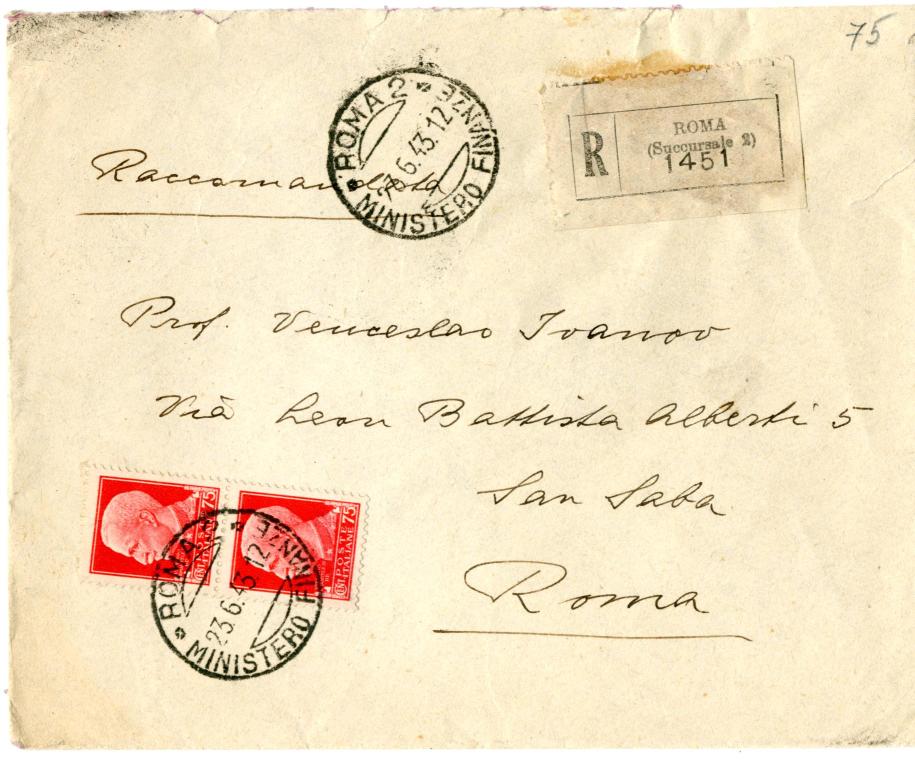 75
ROMA 2 * MINISTERO FINANZE *
23.6.43.12
R
ROMA
(Succursale 2)
1451
Raccomandata
Prof. Venceslao Ivanov
Via Leon Battista Alberti 5
San Saba
Roma
POSTE ITALIANE 75 CENT
POSTE ITALIANE 75 CENT
ROMA * MINISTERO FINANZE *
23.6.43.12